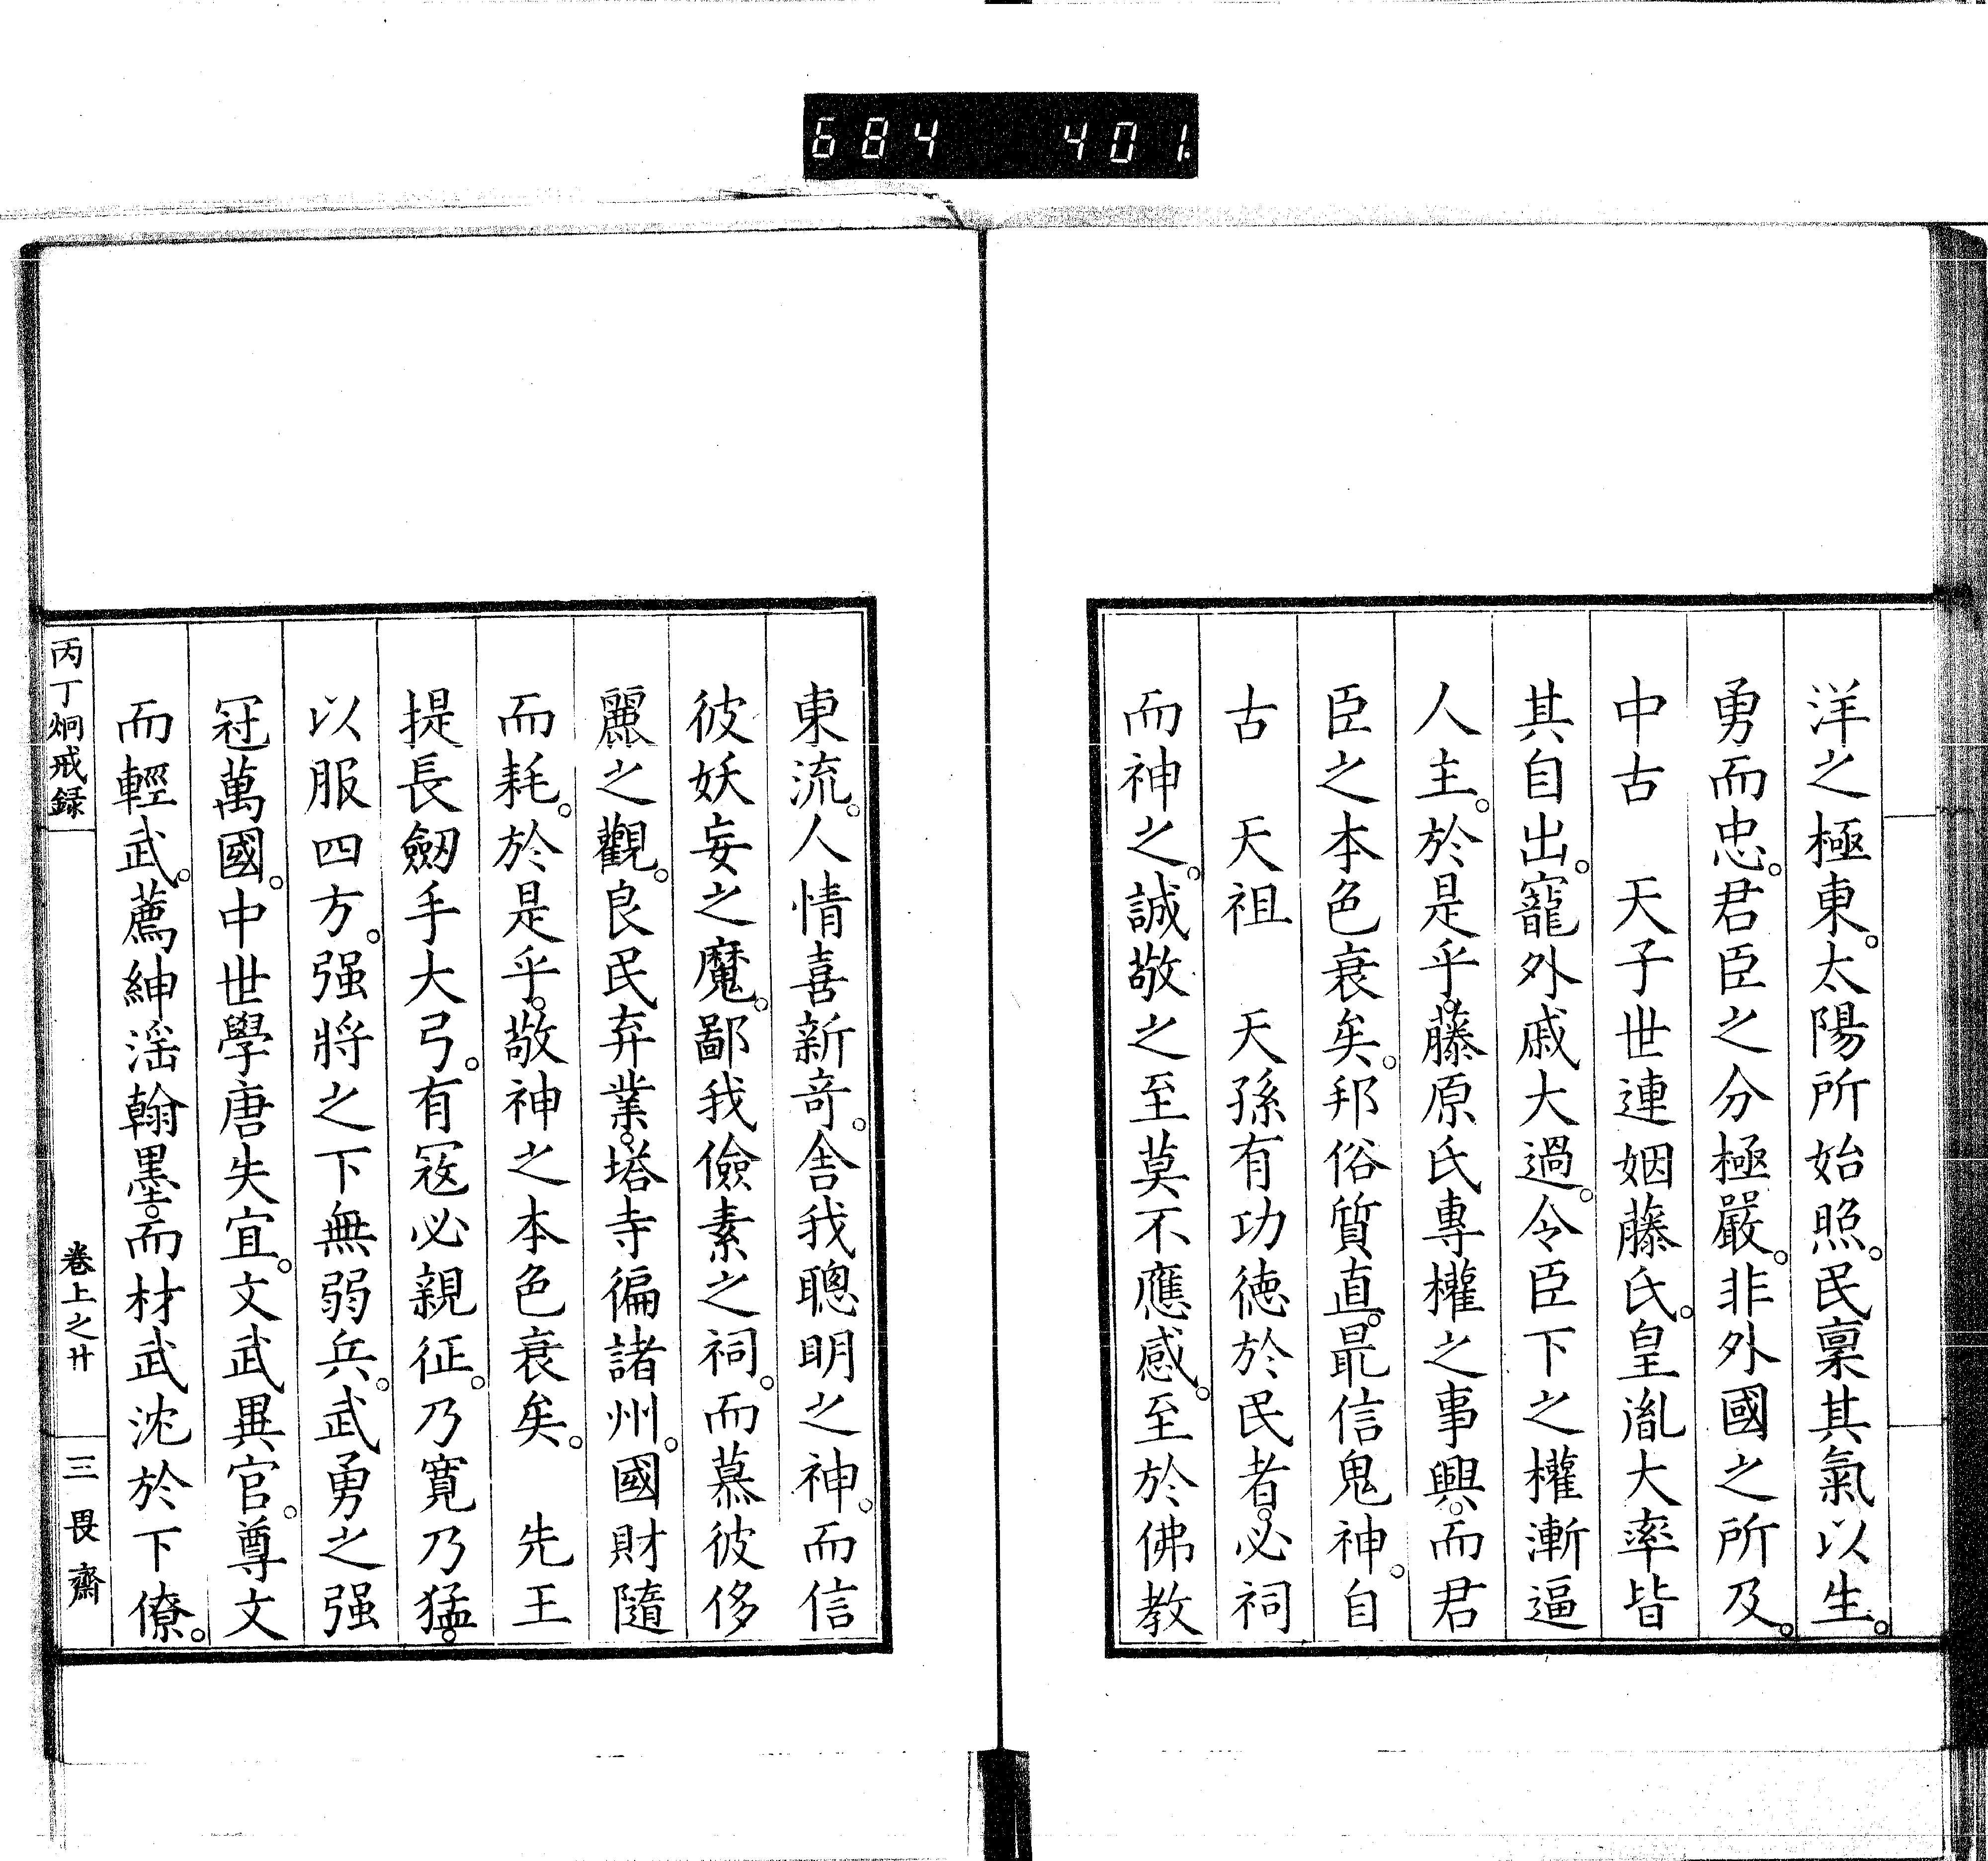 684 401
洋之極東。太陽所始照。民稟其氣以生。
勇而忠。君臣之分極嚴。非外國之所及。
中古　天子世連姻藤氏。皇胤大率皆
其自出。寵外戚大過。令臣下之權漸逼
人主。於是乎。藤原氏專權之事興。而君
臣之本色衰矣。邦俗質直。最信鬼神。自
古　天祖　天孫有功徳於民者。必祠
而神之。誠敬之至莫不應感。至於佛教
東流。人情喜新竒。舎我聰明之神。而信
彼妖妄之魔。鄙我儉素之祠。而慕彼侈
麗之觀。良民弃業。塔寺徧諸州。國財隨
而耗。於是乎。敬神之本色衰矣。　先王
提長劔手大弓。有冦必親征。乃寛乃猛。
以服四方。强將之下無弱兵。武勇之强
冠萬國。中世學唐失宜。文武異官。尊文
而輕武。薦紳滛翰墨。而材武沈於下僚。
丙丁炯戒録
卷上之廾
三畏齋